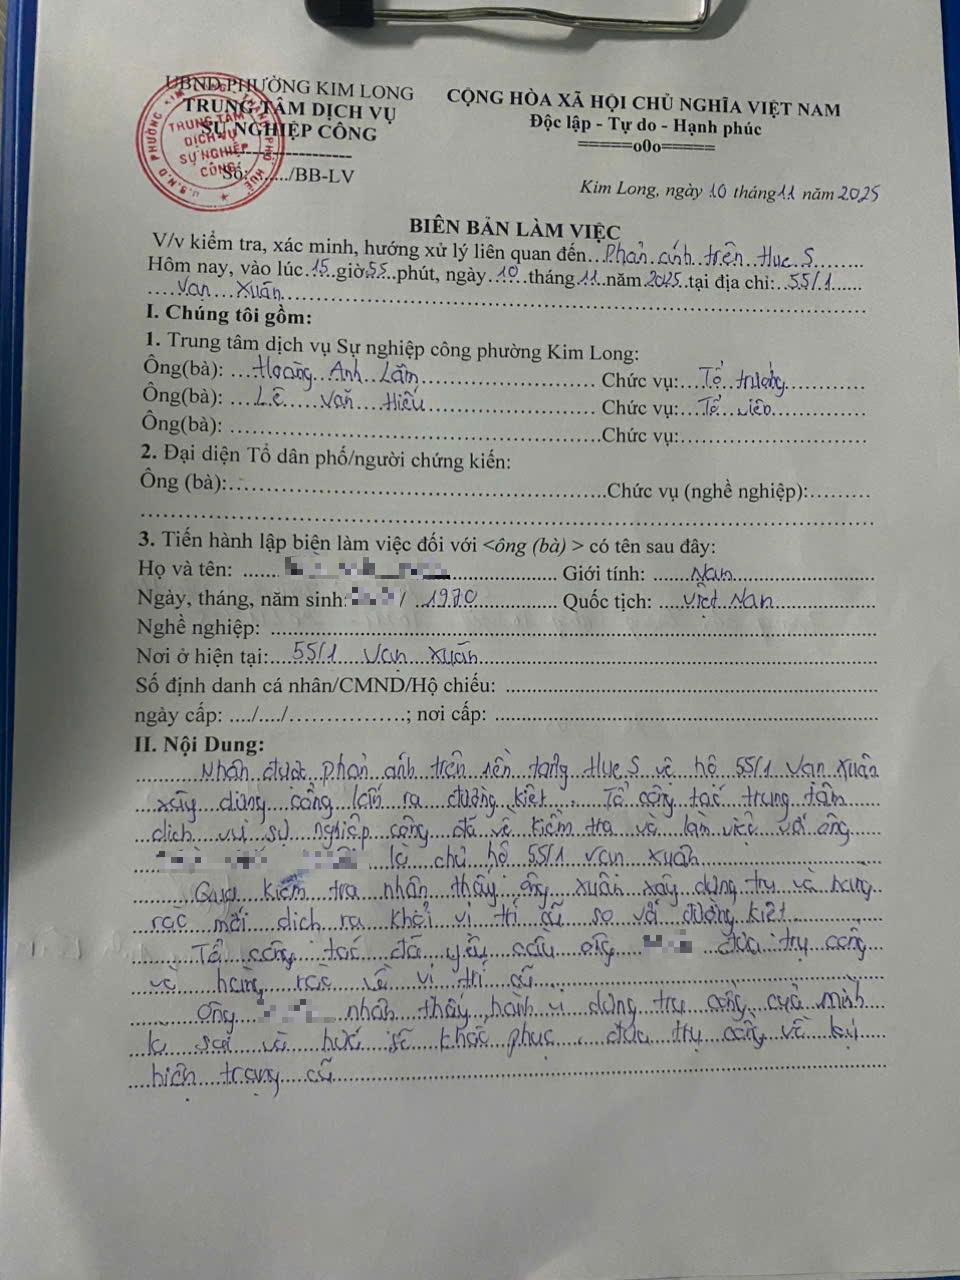 UBND PHƯỜNG KIM LONG
TRUNG TÂM DỊCH VỤ
SỰ NGHIỆP CÔNG
CỘNG HÒA XÃ HỘI CHỦ NGHĨA VIỆT NAM
Độc lập - Tự do - Hạnh phúc
=====o0o=====
Số:....../BB-LV
TRUNG TÂM
DỊCH VỤ
SỰ NGHIỆP
CÔNG
Kim Long, ngày 10 tháng 11 năm 2025
BIÊN BẢN LÀM VIỆC
V/v kiểm tra, xác minh, hướng xử lý liên quan đến...Phản ánh trên Hue S
Hôm nay, vào lúc 15 giờ 55 phút, ngày 10 tháng 11 năm 2025 tại địa chỉ: 55/1
Vạn Xuân
I. Chúng tôi gồm:
1. Trung tâm dịch vụ Sự nghiệp công phường Kim Long:
Ông(bà): Hoàng Anh Lâm Chức vụ: Tổ trưởng
Ông(bà): Lê Văn Hiếu Chức vụ: Tổ viên
Ông(bà): Chức vụ:
2. Đại diện Tổ dân phố/người chứng kiến:
Ông (bà): Chức vụ (nghề nghiệp):
3. Tiến hành lập biên làm việc đối với <ông (bà) > có tên sau đây:
Họ và tên: Giới tính: Nam
Ngày, tháng, năm sinh: / 1970 Quốc tịch: Việt Nam
Nghề nghiệp:
Nơi ở hiện tại: 55/1 Vạn Xuân
Số định danh cá nhân/CMND/Hộ chiếu:
ngày cấp: ..../..../................; nơi cấp:
II. Nội Dung:
Nhận được phản ánh trên nền tảng Hue S về hộ 55/1 Vạn Xuân
xây dựng cổng lấn ra đường kiệt. Tổ công tác trung tâm
dịch vụ sự nghiệp công đã về kiểm tra và làm việc với ông
là chủ hộ 55/1 Vạn Xuân
Qua kiểm tra nhận thấy ông Xuân xây dựng trụ và hàng
rào mới dịch ra khỏi vị trí cũ so với đường kiệt
Tổ công tác đã yêu cầu ông đưa trụ cổng
và hàng rào về vị trí cũ
Ông nhận thấy hành vi dựng trụ cổng của mình
là sai và hứa sẽ khắc phục, đưa trụ cổng về
hiện trạng cũ